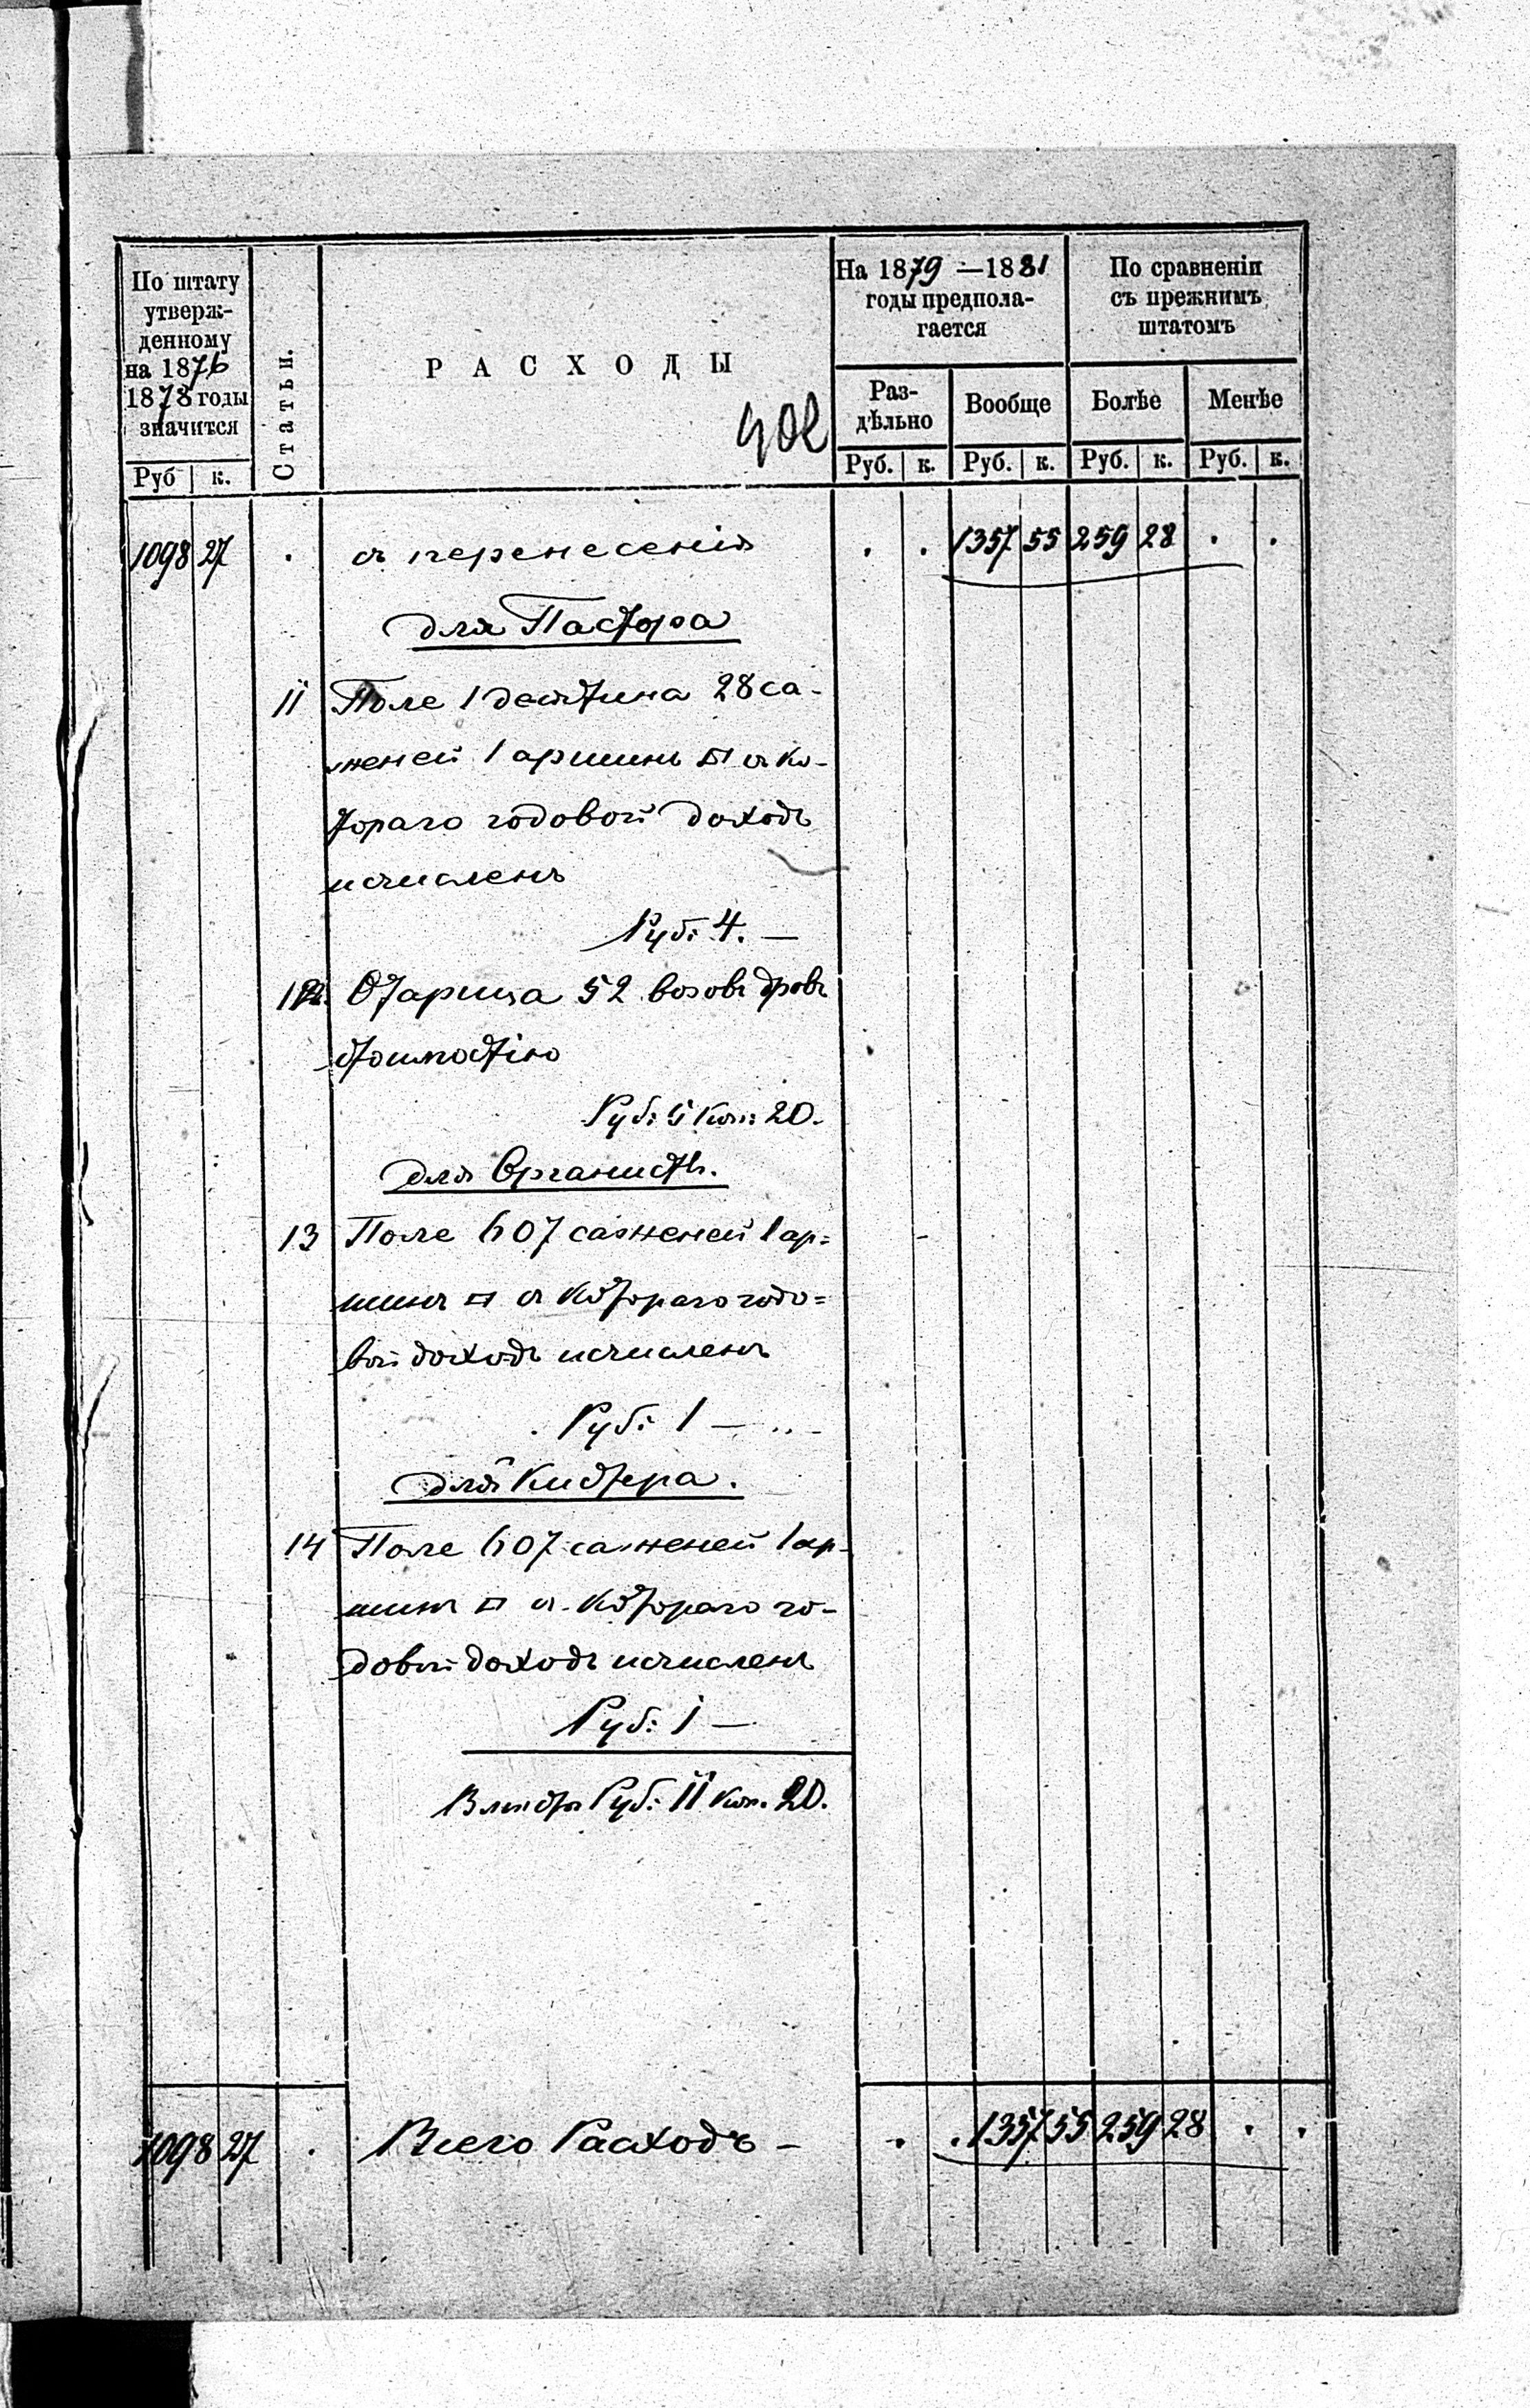 По штату
утверж-
денному
на 1876
1878 годы
значится
Статьи.
РАСХОДЫ
402
На 1879 — 1881
годы предпола-
гается
По сравненіи
съ прежнимъ
штатомъ
Раз-
дѣльно
Вообще
Болѣе
Менѣе
Руб к.
Руб. к. Руб. к. Руб. к. Руб. к.
1098 27 . съ перенесенія . . 1357 55 259 28 . .
для Пастора
11 Поле 1 десятина 28 са-
женей 1 аршинъ □ съ ко-
тораго годовой доходъ
исчисленъ
Руб: 4. —
12. 52 возовъ дровъ
стоимостію
Руб: 5 Коп: 20.
для Органиста.
13 Поле 607 саженей 1 ар=
шинъ □ съ котораго годо=
вой доходъ исчисленъ
Руб: 1 —
для Кистера.
14 Поле 607 саженей 1 ар-
шинъ □ съ котораго го-
довой доходъ исчисленъ
Руб: 1 —
Вмѣстѣ Руб: 11 Коп. 20.
1098 27 . Всего Расходъ — . . 1357 55 259 28 . .